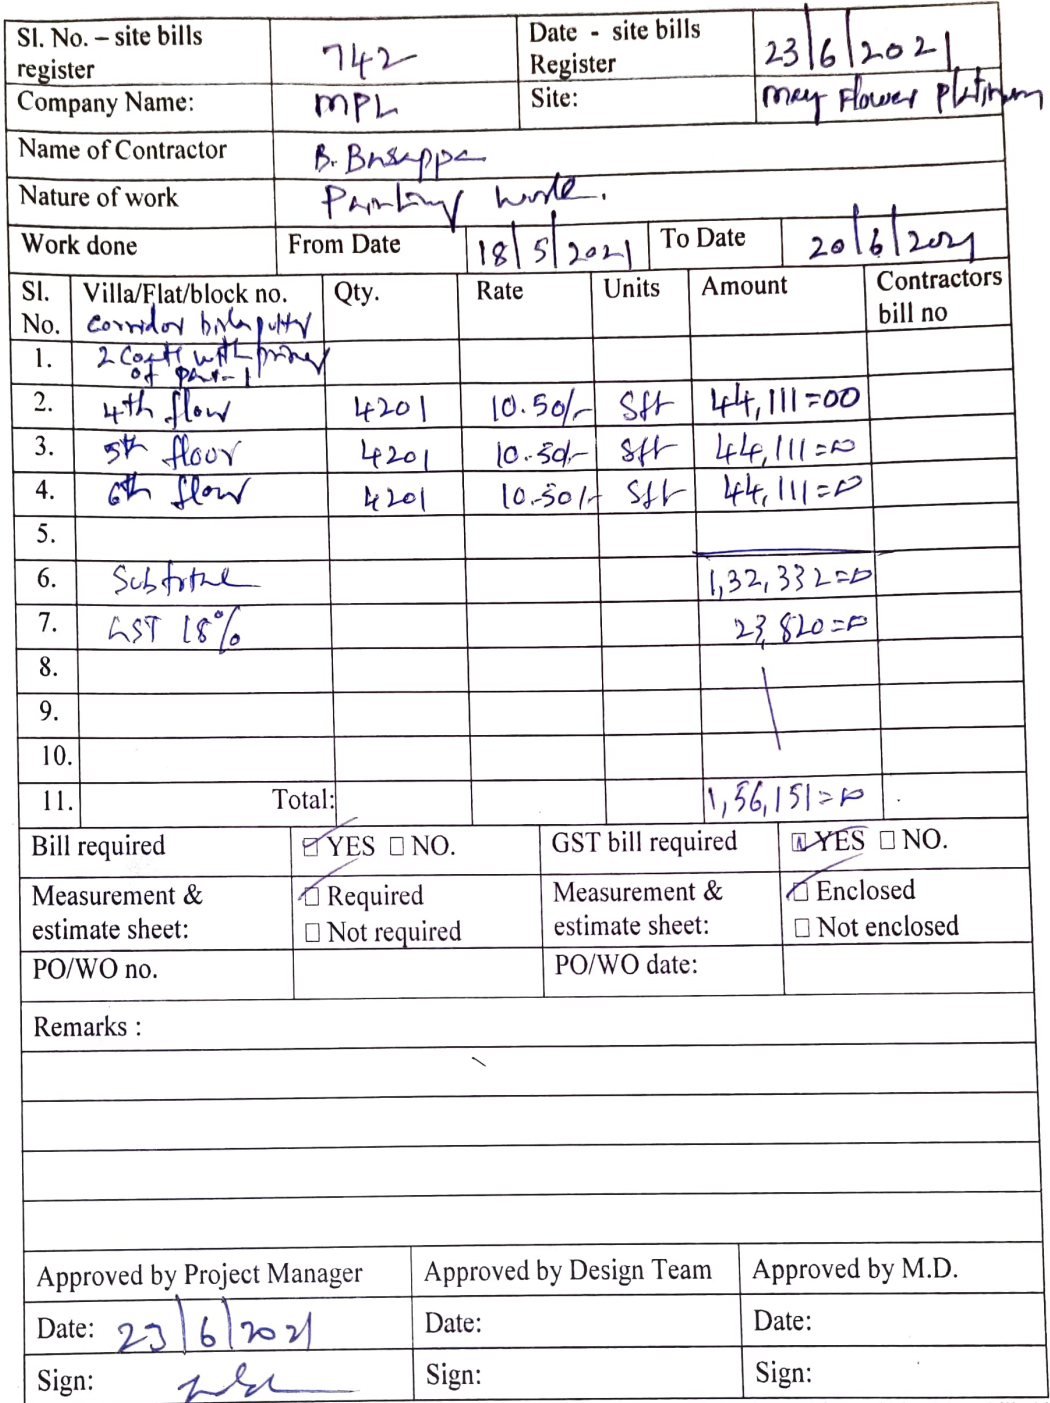 Sl. No. – site bills register 742 Date - site bills Register 23/6/2021
Company Name: MPL Site: May Flower Platinum
Name of Contractor B. Basappa
Nature of work Painting work.
Work done From Date 18/5/2021 To Date 20/6/2021
Sl. No. Villa/Flat/block no. Qty. Rate Units Amount Contractors bill no
corridor birla putty
1. 2 Coats with primer
of part-1
2. 4th floor 4201 10.50/- Sft 44,111=00
3. 5th floor 4201 10.50/- Sft 44,111=00
4. 6th floor 4201 10.50/- Sft 44,111=00
5.
6. Subtotal 1,32,332=00
7. GST 18% 23,820=00
8.
9.
10.
11. Total: 1,56,151=00
Bill required YES NO. GST bill required YES NO.
Measurement & estimate sheet: Required Not required Measurement & estimate sheet: Enclosed Not enclosed
PO/WO no. PO/WO date:
Remarks :
Approved by Project Manager Approved by Design Team Approved by M.D.
Date: 23/6/2021 Date: Date:
Sign: Sign: Sign: